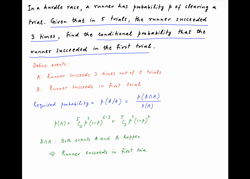 In a hurdle race, a runner has probability p of clearing a
trial. Given that in 5 trials, the runner succeeded
3 times, find the conditional probability that the
runner succeeded in the first trial.
Define events:
A: Runner succeeds 3 times out of 5 trials
B: Runner succeeds in first trial
Required probability = P(B/A) = P(B∩A) / P(A)
P(A) = ⁵C₃ p³ (1-p)⁵⁻³ = ⁵C₃ p³ (1-p)²
B∩A: Both events A and B happen
⇒ Runner succeeds in first tria